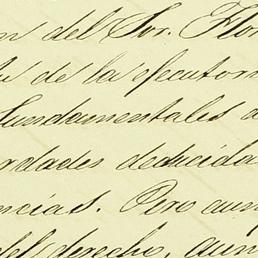 n del Sor. Flor
de la ejecutor
fundamentales a
rdades deducida
ncias. Pero aun
del derecho, aun